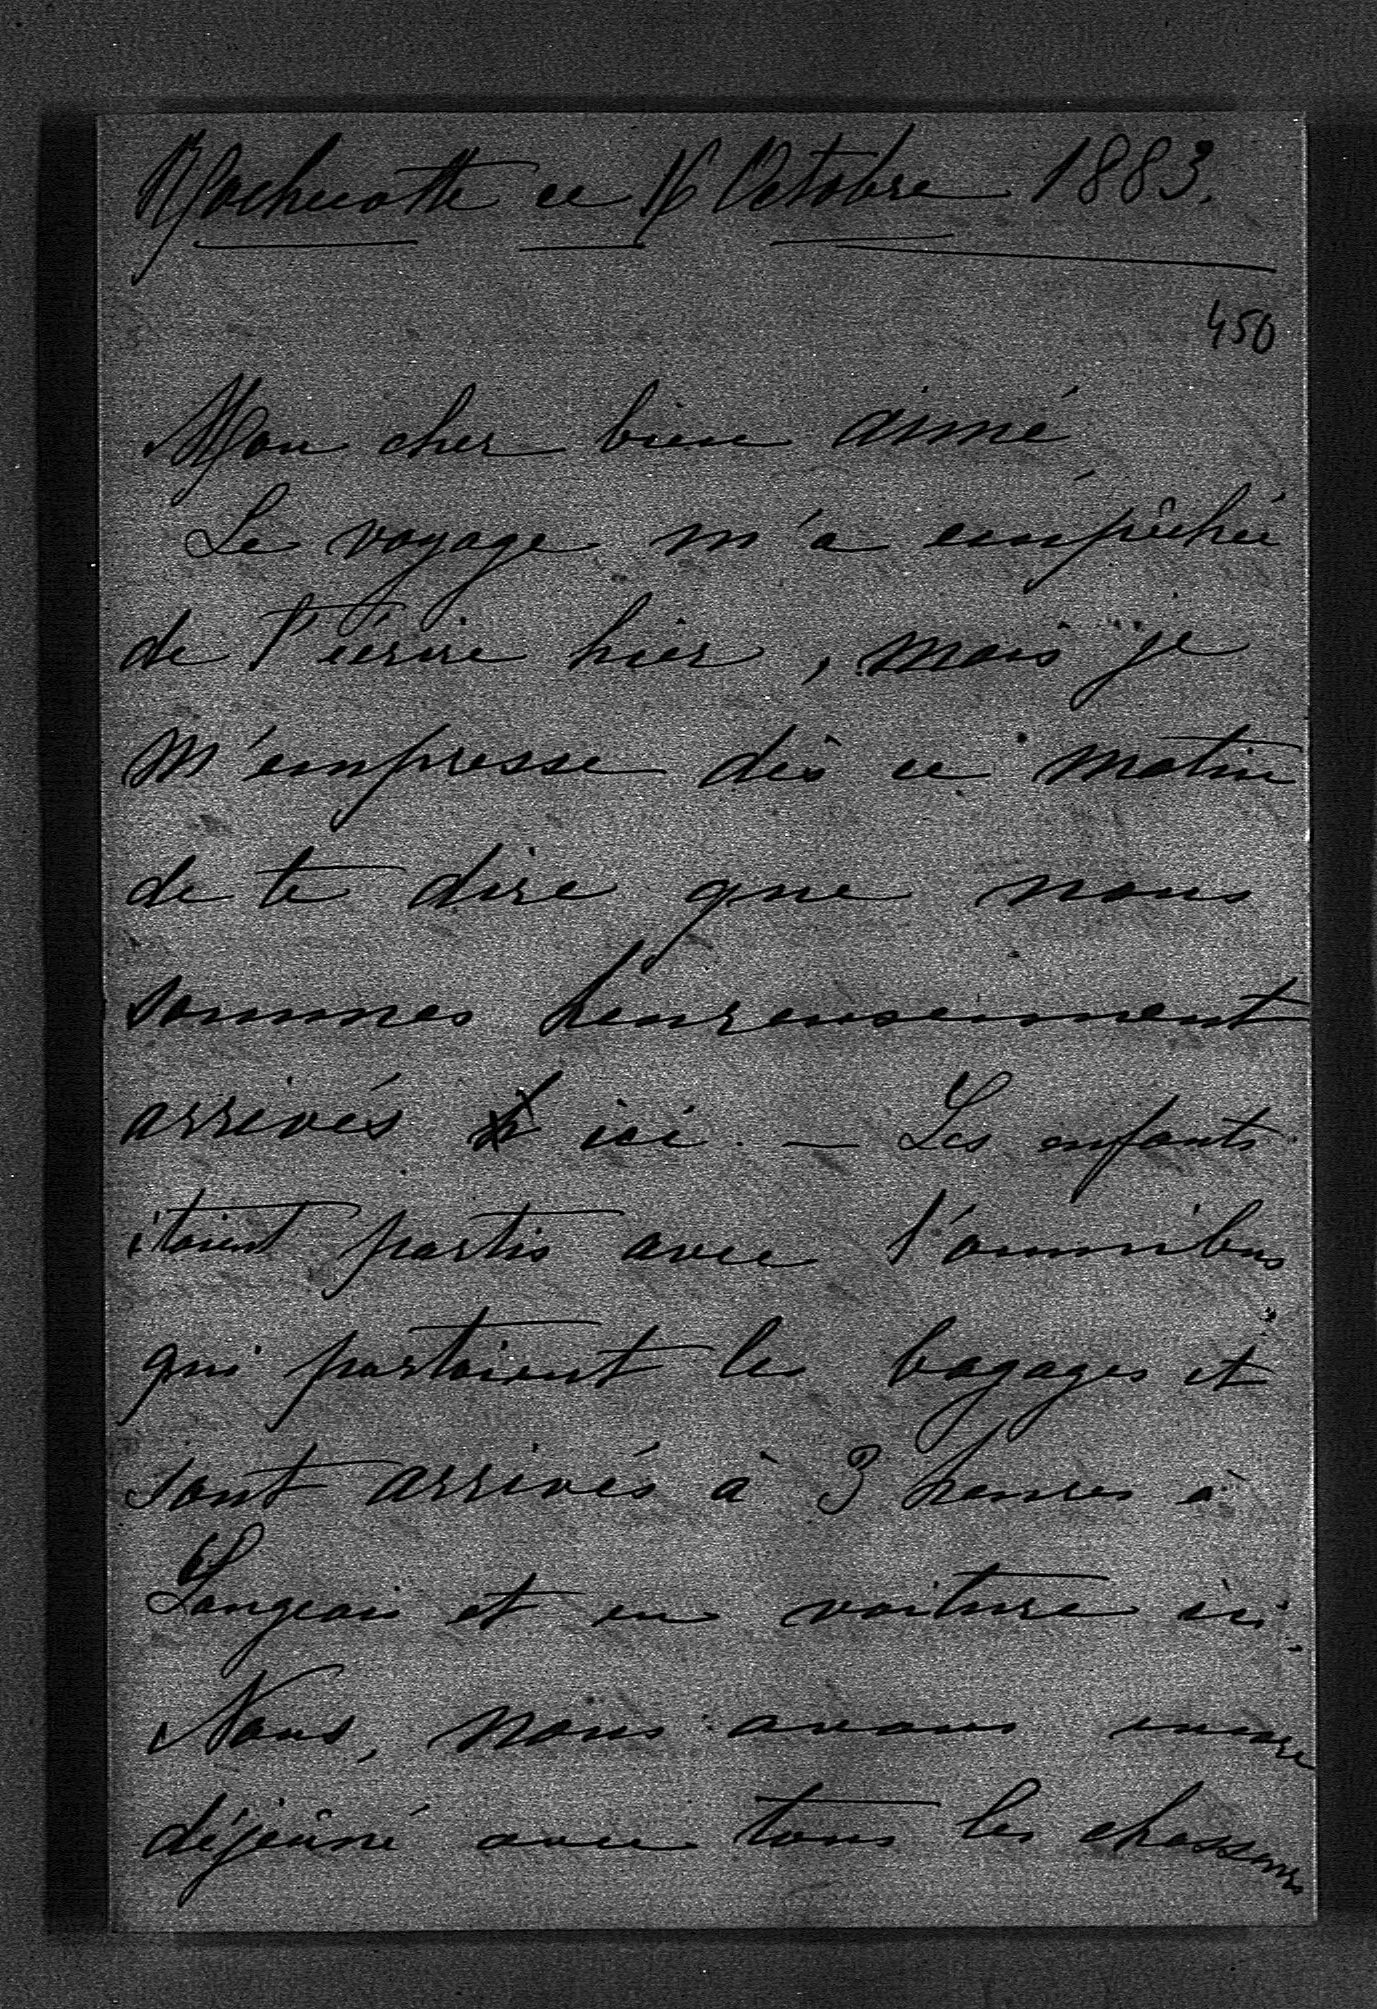 Rochecotte ce 16 Octobre 1883.
450
Mon cher bien aimé,
Le voyage m'a empêchée
de t'écrire hier, mais je
m'empresse dès ce matin
de te dire que nous
sommes heureusement
arrivés ici. — Les enfants
étaient partis avec l'omnibus
qui portaient les bagages et
sont arrivés à 3 heures à
Langeais et en voiture ici.
Nous, nous avons encore
déjeûné avec tous les chasseurs